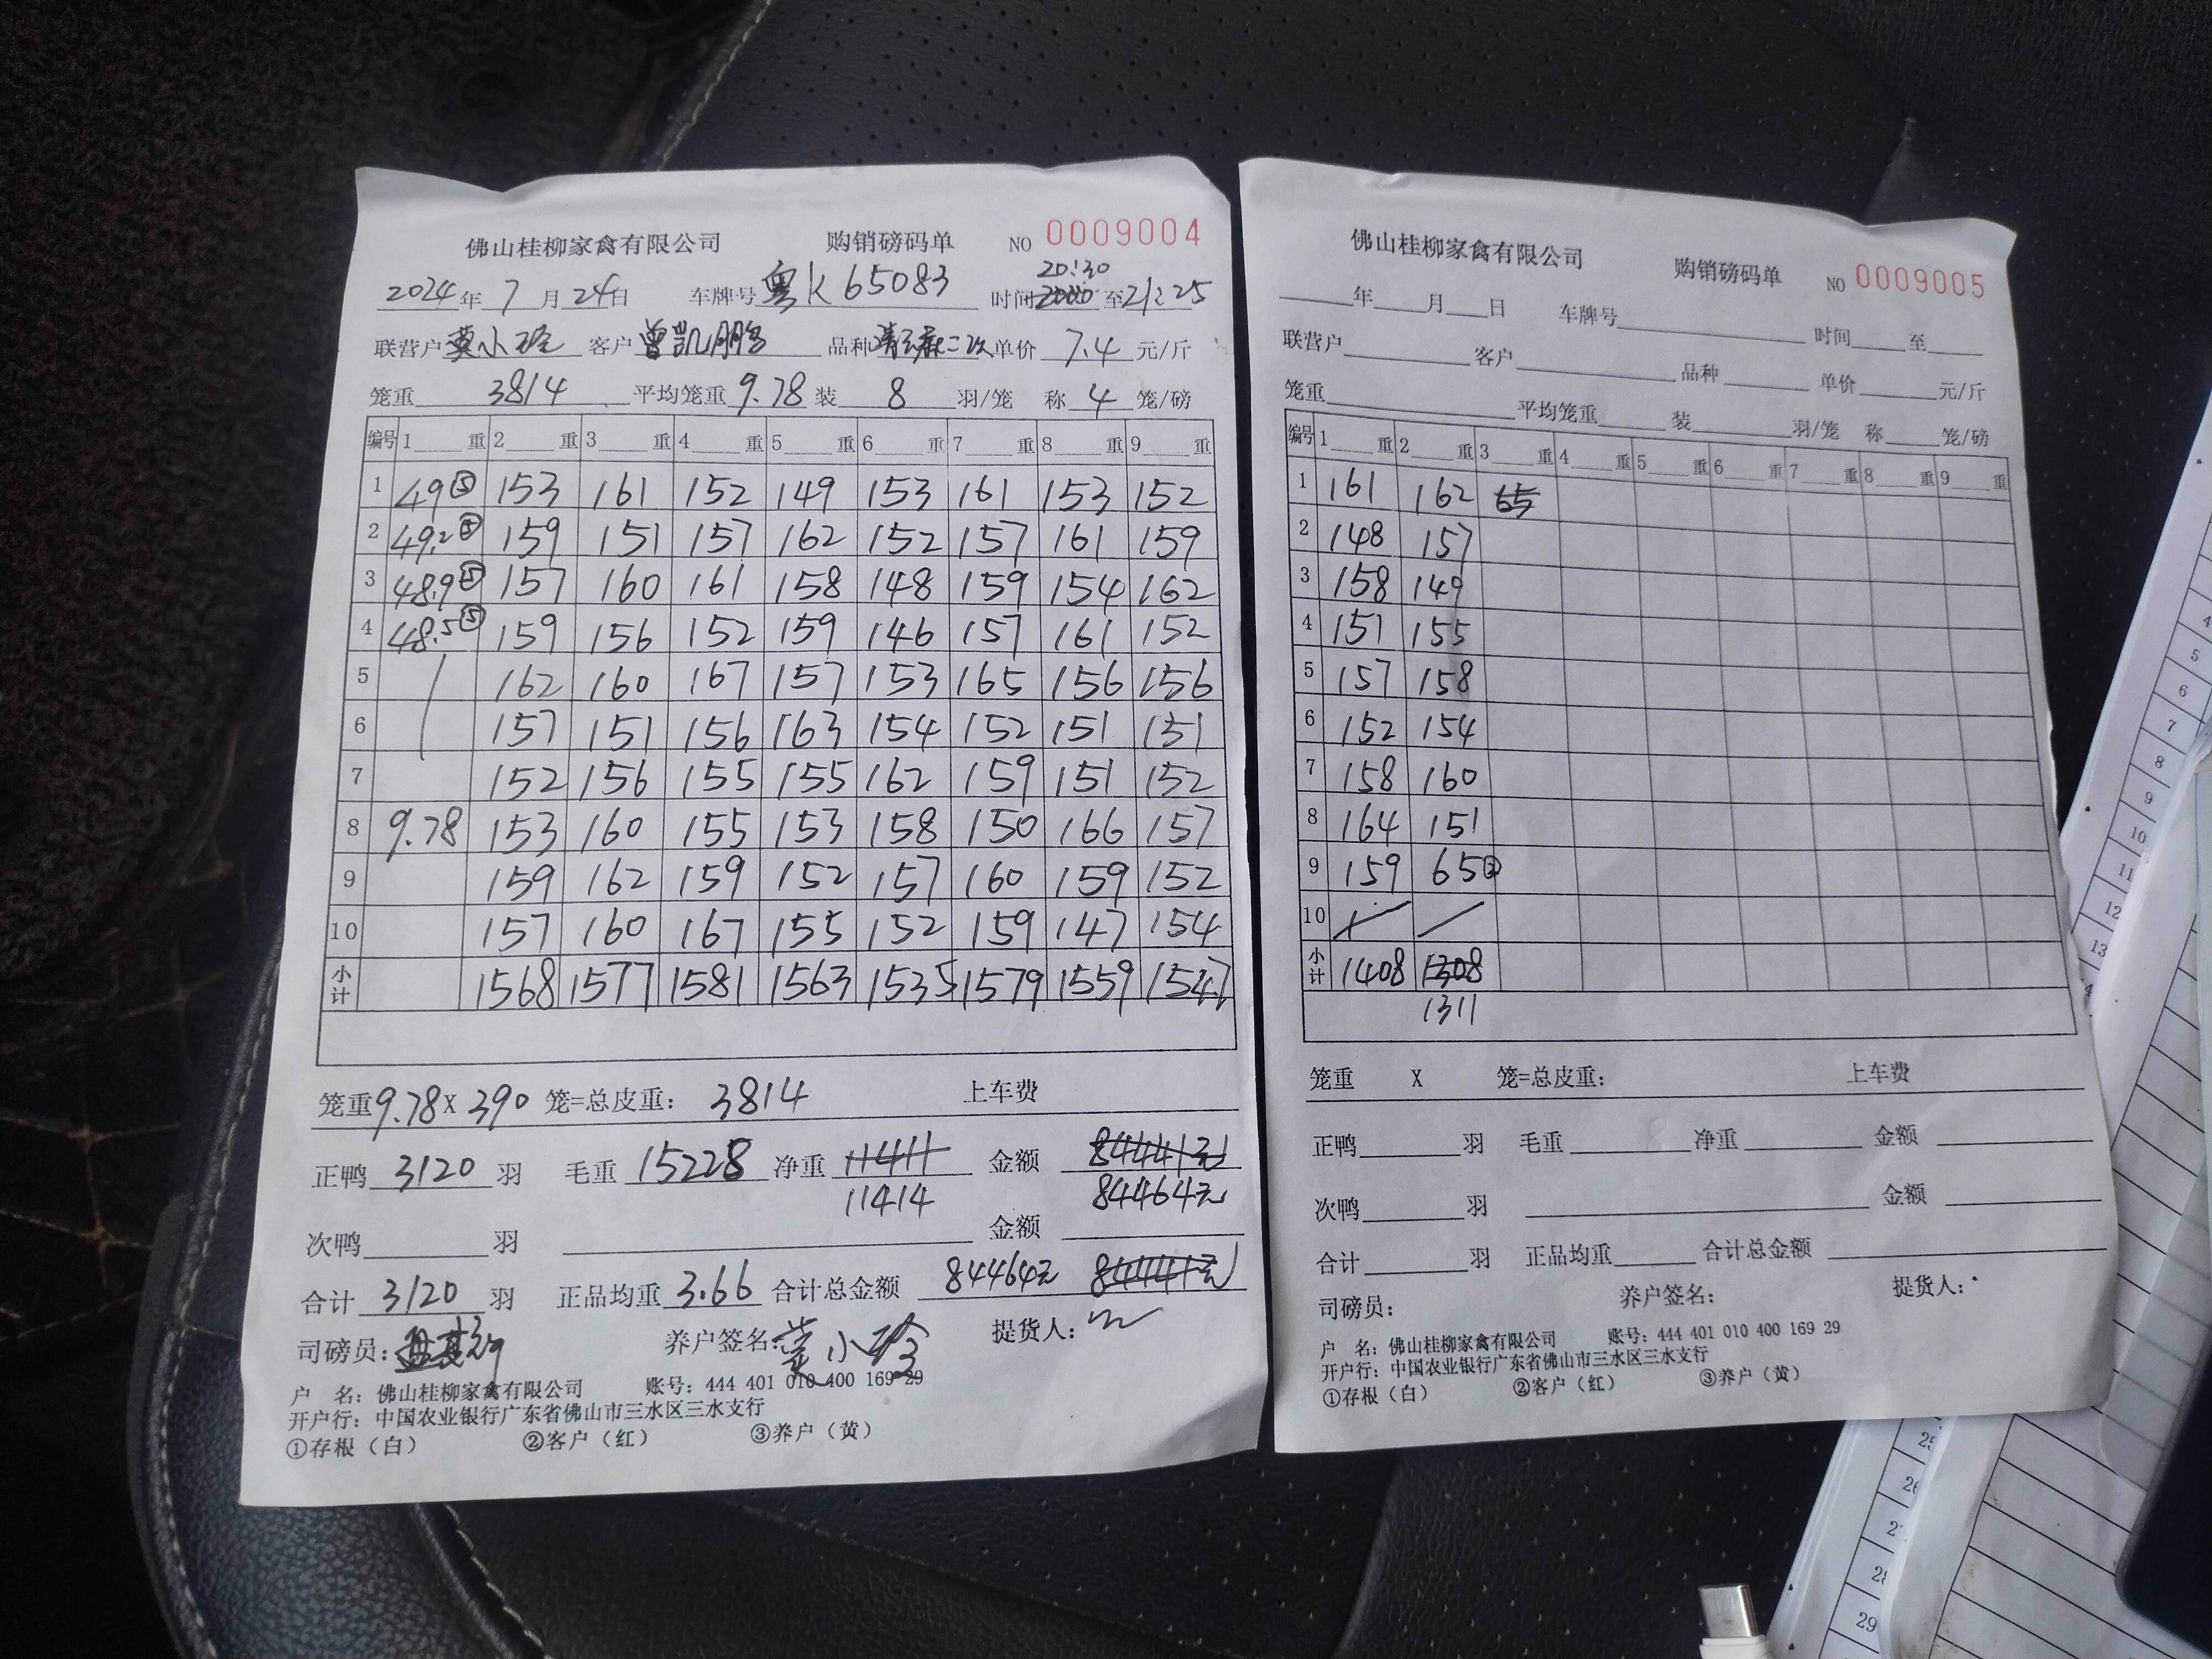 佛山桂柳家禽有限公司 购销磅码单 NO 0009004
20:30
2024年 7月 24日 车牌号 粤K65083 时间 2000 至 21:25
联营户 莫小玲 客户 曾凯鹏 品种 二次 单价 7.4 元/斤
笼重 3814 平均笼重 9.78 装 8 羽/笼 称 4 笼/磅
编号 1 重 2 重 3 重 4 重 5 重 6 重 7 重 8 重 9 重
1 49⑤ 153 161 152 149 153 161 153 152
2 49.2⑤ 159 151 157 162 152 157 161 159
3 48.9⑤ 157 160 161 158 148 159 154 162
4 48.5⑤ 159 156 152 159 146 157 161 152
5 162 160 167 157 153 165 156 156
6 157 151 156 163 154 152 151 151
7 152 156 155 155 162 159 151 152
8 9.78 153 160 155 153 158 150 166 157
9 159 162 159 152 157 160 159 152
10 157 160 167 155 152 159 147 154
小计 1568 1577 1581 1563 1535 1579 1559 1547
笼重 9.78 X 390 笼=总皮重: 3814 上车费
正鸭 3120 羽 毛重 15228 净重 11411 金额 84441元
11414 84464元
次鸭 羽 金额
合计 3120 羽 正品均重 3.66 合计总金额 84464元 84441元
司磅员: 养户签名: 莫小玲 提货人:
户 名: 佛山桂柳家禽有限公司 账号: 444 401 010 400 169 29
开户行: 中国农业银行广东省佛山市三水区三水支行
①存根（白） ②客户（红） ③养户（黄）
佛山桂柳家禽有限公司 购销磅码单 NO 0009005
年 月 日 车牌号 时间 至
联营户 客户 品种 单价 元/斤
笼重 平均笼重 装 羽/笼 称 笼/磅
编号 1 重 2 重 3 重 4 重 5 重 6 重 7 重 8 重 9 重
1 161 162 65
2 148 157
3 158 149
4 151 155
5 157 158
6 152 154
7 158 160
8 164 151
9 159 65②
10
小计 1408 1308
1311
笼重 X 笼=总皮重: 上车费
正鸭 羽 毛重 净重 金额
次鸭 羽 金额
合计 羽 正品均重 合计总金额
司磅员: 养户签名: 提货人:
户 名: 佛山桂柳家禽有限公司 账号: 444 401 010 400 169 29
开户行: 中国农业银行广东省佛山市三水区三水支行
①存根（白） ②客户（红） ③养户（黄）
4
5
6
7
8
9
10
11
12
13
25
26
29